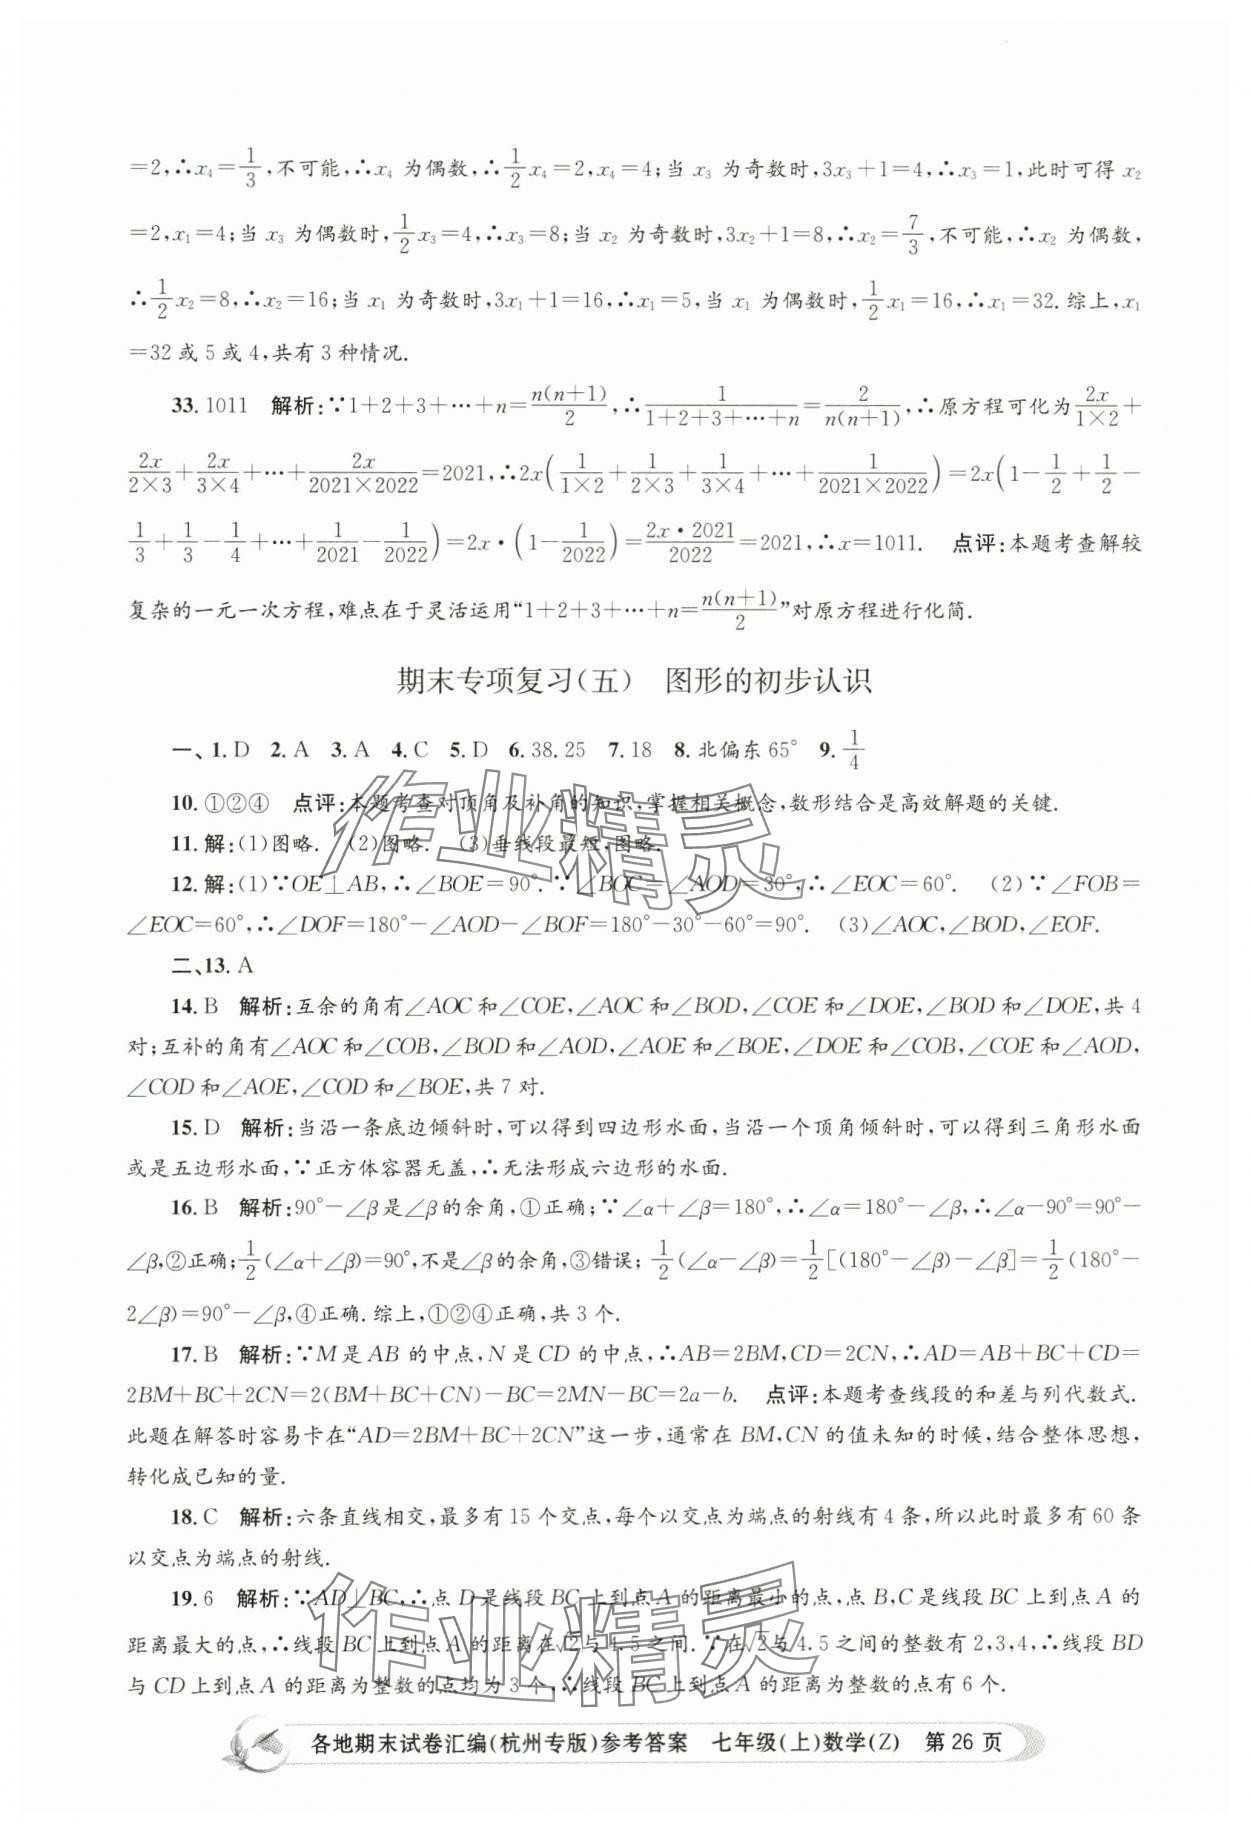 =2,∴x₄=1/3,不可能,∴x₄ 为偶数,∴1/2x₄=2,x₄=4;当 x₃ 为奇数时,3x₃+1=4,∴x₃=1,此时可得 x₂
=2,x₁=4;当 x₃ 为偶数时,1/2x₃=4,∴x₃=8;当 x₂ 为奇数时,3x₂+1=8,∴x₂=7/3,不可能,∴x₂ 为偶数,
∴1/2x₂=8,∴x₂=16;当 x₁ 为奇数时,3x₁+1=16,∴x₁=5,当 x₁ 为偶数时,1/2x₁=16,∴x₁=32.综上,x₁
=32 或 5 或 4,共有 3 种情况.
33. 1011 解析:∵1+2+3+…+n=n(n+1)/2,∴1/(1+2+3+…+n)=2/(n(n+1)),∴原方程可化为2x/(1×2)+
2x/(2×3)+2x/(3×4)+…+2x/(2021×2022)=2021,∴2x(1/(1×2)+1/(2×3)+1/(3×4)+…+1/(2021×2022))=2x(1-1/2+1/2-
1/3+1/3-1/4+…+1/2021-1/2022)=2x•(1-1/2022)=2x•2021/2022=2021,∴x=1011. 点评:本题考查解较
复杂的一元一次方程,难点在于灵活运用“1+2+3+…+n=n(n+1)/2”对原方程进行化简.
期末专项复习(五) 图形的初步认识
一、1. D 2. A 3. A 4. C 5. D 6. 38.25 7. 18 8. 北偏东 65° 9. 1/4
10. ①②④ 点评:本题考查对顶角及补角的知识,掌握相关概念,数形结合是高效解题的关键.
11. 解:(1)图略. (2)图略. (3)垂线段最短,图略.
12. 解:(1)∵OE⊥AB,∴∠BOE=90°.∵∠BOC=∠AOD=30°,∴∠EOC=60°. (2)∵∠FOB=
∠EOC=60°,∴∠DOF=180°-∠AOD-∠BOF=180°-30°-60°=90°. (3)∠AOC,∠BOD,∠EOF.
二、13. A
14. B 解析:互余的角有∠AOC 和∠COE,∠AOC 和∠BOD,∠COE 和∠DOE,∠BOD 和∠DOE,共 4
对;互补的角有∠AOC 和∠COB,∠BOD 和∠AOD,∠AOE 和∠BOE,∠DOE 和∠COB,∠COE 和∠AOD,
∠COD 和∠AOE,∠COD 和∠BOE,共 7 对.
15. D 解析:当沿一条底边倾斜时,可以得到四边形水面,当沿一个顶角倾斜时,可以得到三角形水面
或是五边形水面,∵正方体容器无盖,∴无法形成六边形的水面.
16. B 解析:90°-∠β是∠β的余角,①正确;∵∠α+∠β=180°,∴∠α=180°-∠β,∴∠α-90°=90°-
∠β,②正确;1/2(∠α+∠β)=90°,不是∠β的余角,③错误;1/2(∠α-∠β)=1/2[(180°-∠β)-∠β]=1/2(180°-
2∠β)=90°-∠β,④正确.综上,①②④正确,共 3 个.
17. B 解析:∵M 是 AB 的中点,N 是 CD 的中点,∴AB=2BM,CD=2CN,∴AD=AB+BC+CD=
2BM+BC+2CN=2(BM+BC+CN)-BC=2MN-BC=2a-b. 点评:本题考查线段的和差与列代数式.
此题在解答时容易卡在“AD=2BM+BC+2CN”这一步,通常在 BM,CN 的值未知的时候,结合整体思想,
转化成已知的量.
18. C 解析:六条直线相交,最多有 15 个交点,每个以交点为端点的射线有 4 条,所以此时最多有 60 条
以交点为端点的射线.
19. 6 解析:∵AD⊥BC,∴点 D 是线段 BC 上到点 A 的距离最小的点,点 B,C 是线段 BC 上到点 A 的
距离最大的点,∴线段 BC 上到点 A 的距离在√2与 4.5 之间.∵在√2与 4.5 之间的整数有 2,3,4,∴线段 BD
与 CD 上到点 A 的距离为整数的点均为 3 个,∴线段 BC 上到点 A 的距离为整数的点有 6 个.
作业精灵
作业精灵
各地期末试卷汇编(杭州专版)参考答案 七年级(上)数学(Z) 第 26 页